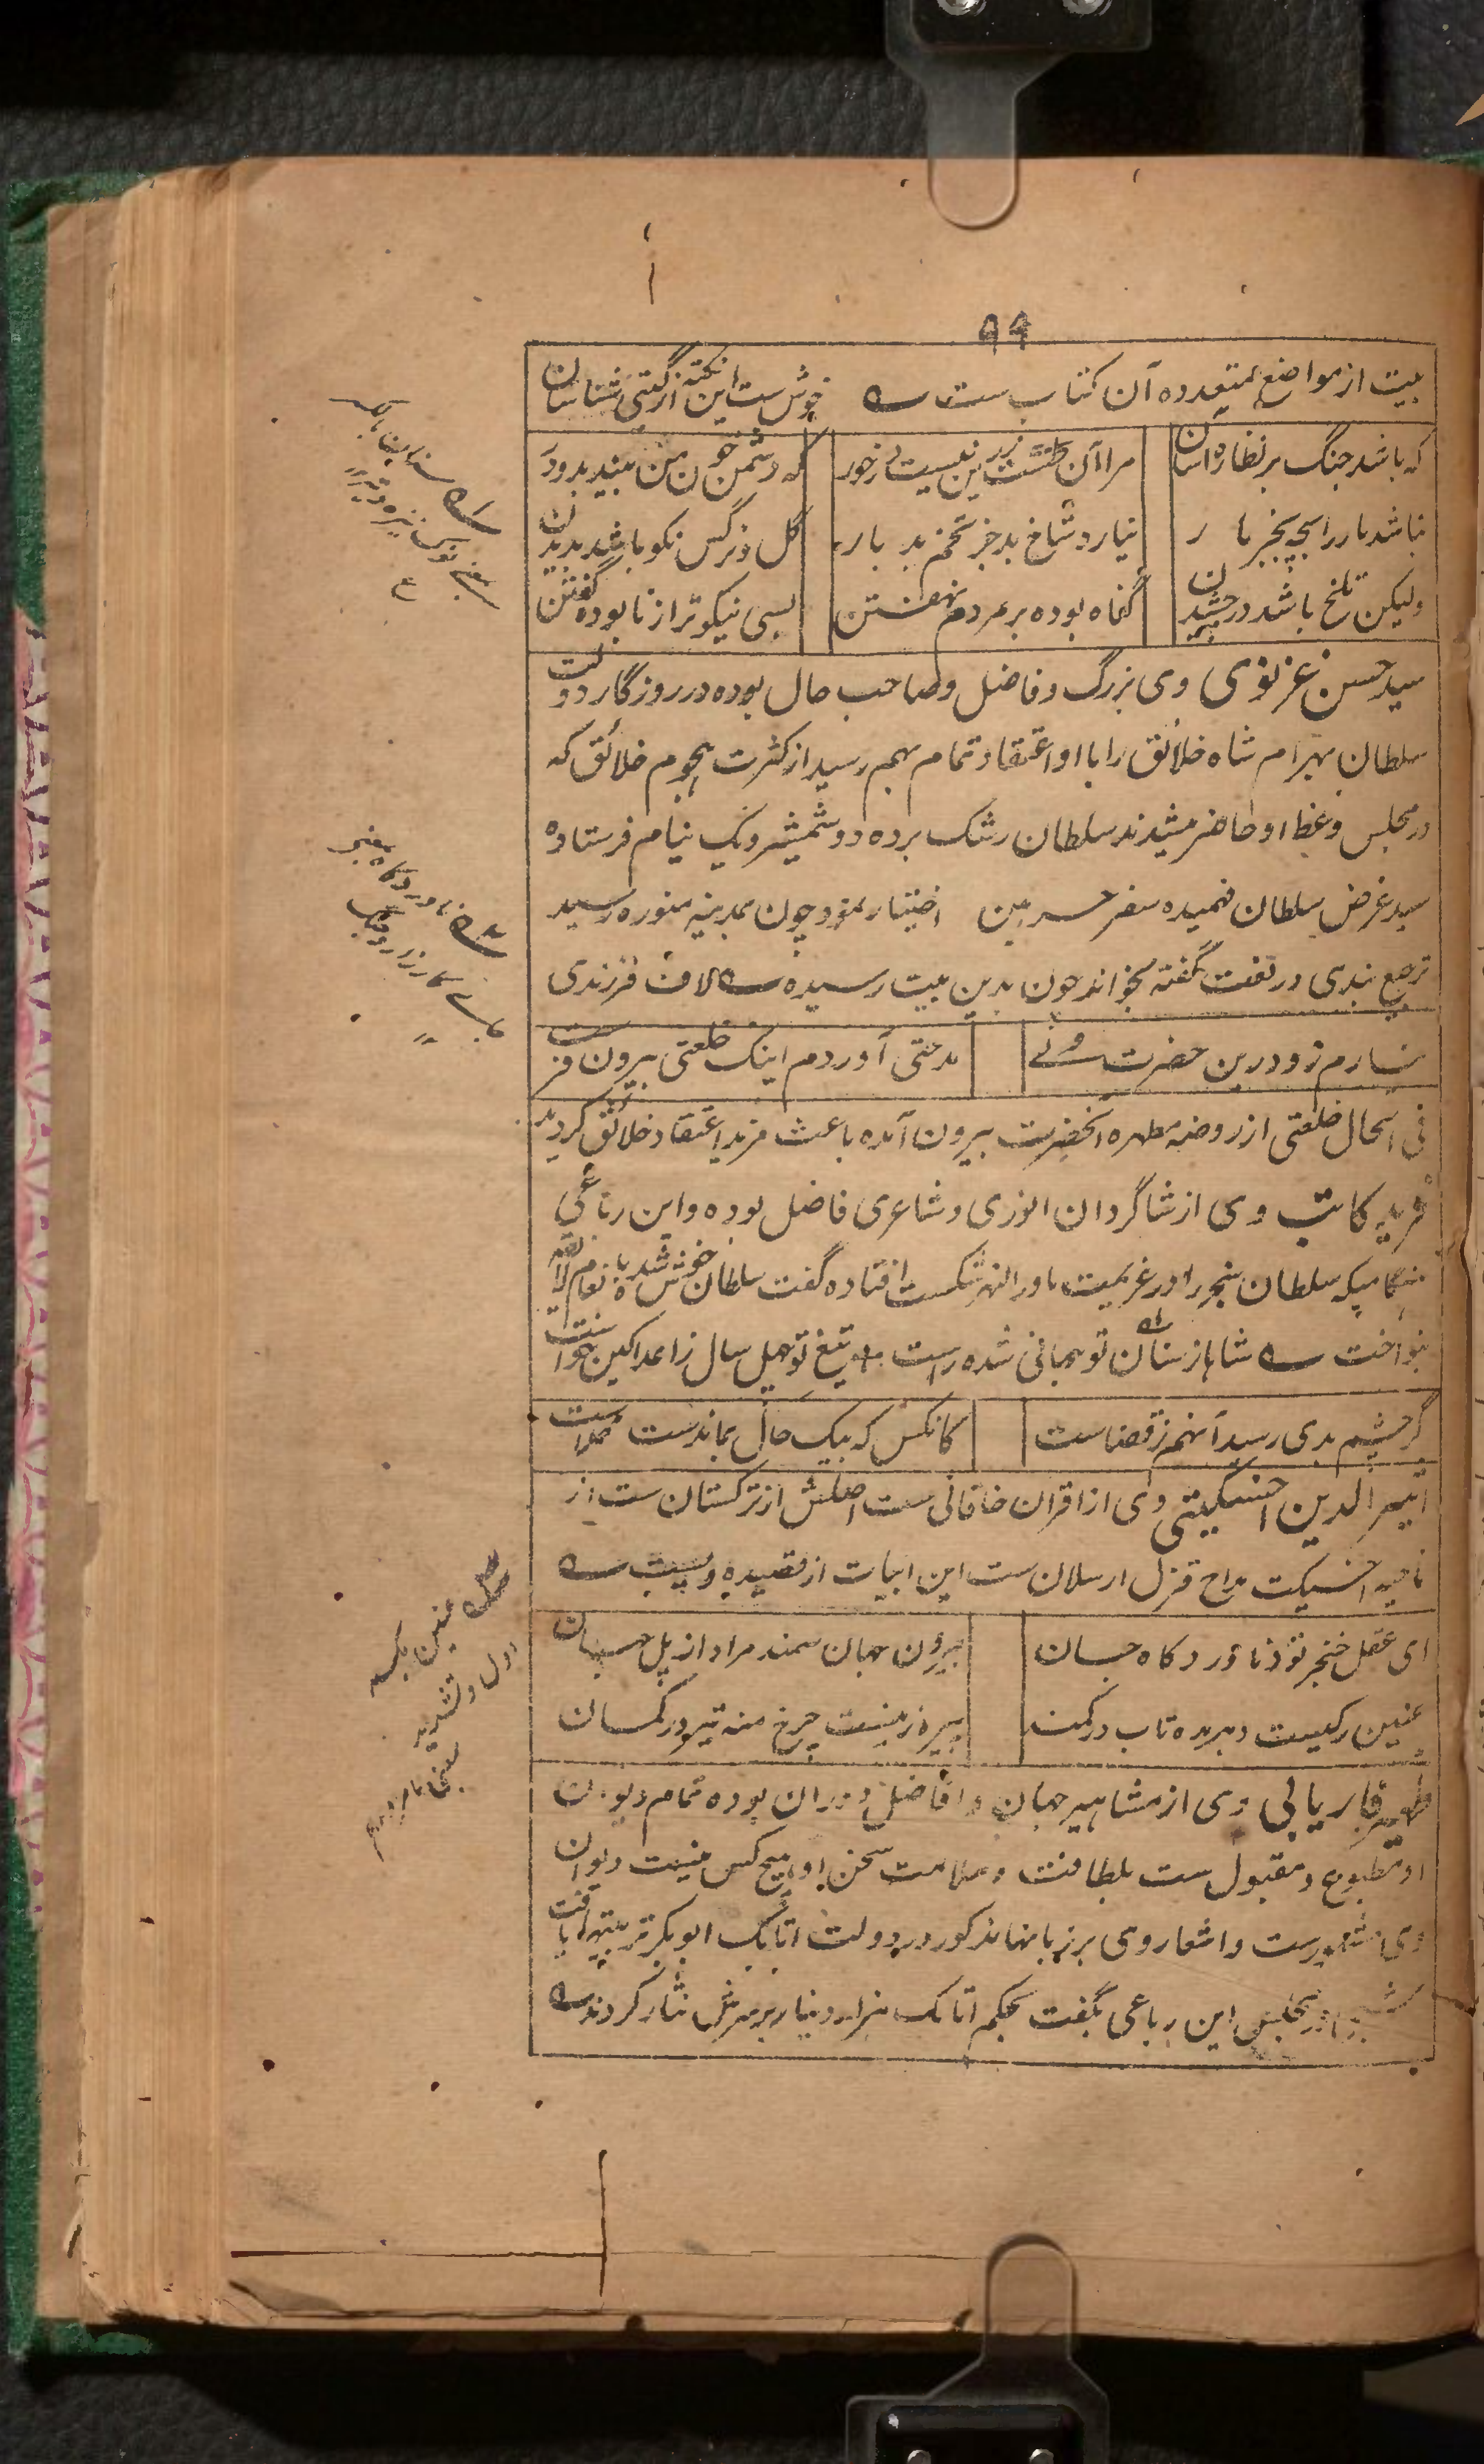 ۹۹
بیت از مواضع متعدده آن کتاب ست ؎ خوش ست این نکته از گیتی شناسان
که باشد جنگ بر نظاره آسان مرا آن طشت زرین نیست در خور که دشمن خون من بیند بدو در
نباشد مار را بچه بجز مار نیارد شاخ بد جز تخم بد بار گل و نرگس نکو باشد بدیدن
ولیکن تلخ باشد در چشیدن گناه بوده بر مردم نهفتن بسی نیکوتر از نابوده گفتن
سید حسن غزنوی وی بزرگ و فاضل و صاحب حال بوده در روزگار دولت
سلطان بهرام شاه خلائق را با او اعتقاد تمام بهم رسید از کثرت هجوم خلائق که
در مجلس وعظ او حاضر میشدند سلطان رشک برده دو شمشیر و یک نیام فرستاده
سید غرض سلطان فهمیده سفر حرمین اختیار نمود چون بمدینه منوره رسید
ترجیع بندی در نعت گفته بخواند چون بدین بیت رسیده ؎ لاف فرزندی
نیارم زد درین حضرت ولے مدحتی آوردم اینک خلعتی بیرون فرست
فی الحال خلعتی از روضه مطهره آنحضرت بیرون آمده باعث مزید اعتقاد خلائق گردید
فرید کاتب وی از شاگردان انوری و شاعری فاضل بوده و این رباعی
هنگامیکه سلطان سنجر را در عزیمت ماوراالنهر شکست افتاده گفت سلطان خوش شده بانعام لایقه
بنواخت ؎ شاها ز سنان تو جهانی شده راست تیغ تو چهل سال ز اعدا کین خواست
گر چشم بدی رسید آنهم ز قضاست کانکس که بیک حال بماندست خداست
اثیر الدین اخسیکتی وی از اقران خاقانی ست اصلش از ترکستان ست از
ناحیه اخسیکت مداح قزل ارسلان ست این ابیات از قصیده ویست ؎
ای عقل خنجر تو ز ناورد کاه جسان بیرون جهان سمند مراد از پل جهان
عنین رگیست دهر مده تاب در کمند پیره زنیست چرخ منه تیر در کمان
ظهیر فاریابی وی از مشاهیر جهان و افاضل دوران بوده تمام دیوان
او مطبوع و مقبول ست بلطافت و سلاست سخن او هیچ کس نیست دیوان
وی مشهورست و اشعار وی بر زبانها مذکور در دولت اتابک ابوبکر تربیتها یافت
شبی در مجلس این رباعی بگفت بحکم اتابک هزار دینار بر سرش نثار کردند ؎
سنان
بمعنی نوک نیزه
ناورد گاه بمعنی
جاے کارزار و جنگ
عنین بکسر
اول و تشدید
بمعنی نامرد